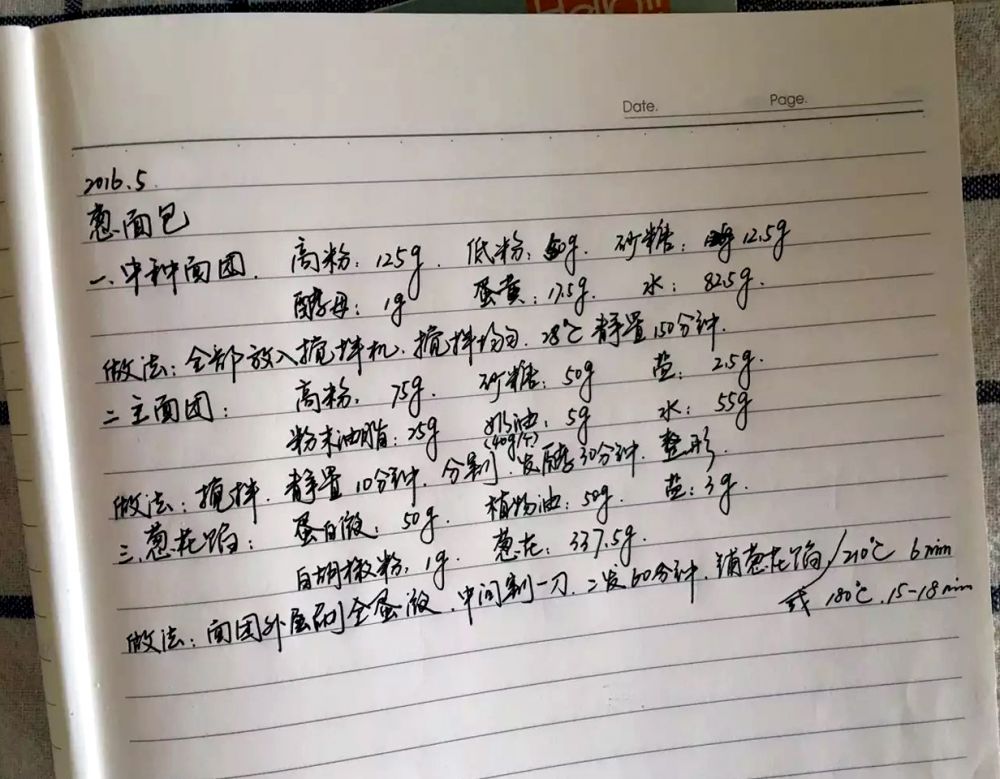 Date. Page.
2016.5
葱面包
一、中种面团. 高粉: 125g. 低粉: 50g. 砂糖: 12.5g
酵母: 1g 蛋黄: 17.5g. 水: 82.5g.
做法: 全部放入搅拌机. 搅拌均匀. 28℃ 静置150分钟.
二主面团: 高粉: 75g. 砂糖: 50g 盐: 2.5g.
粉末油脂: 25g 奶油: 5g 水: 55g
(40g/个)
做法: 搅拌. 静置10分钟. 分割. 发酵30分钟. 整形.
三.葱花馅: 蛋白液: 50g. 植物油: 50g. 盐: 3g.
白胡椒粉: 1g. 葱花: 337.5g.
做法: 面团外层刷全蛋液. 中间割一刀. 二发60分钟. 铺葱花馅/210℃ 6min
或 180℃. 15-18min